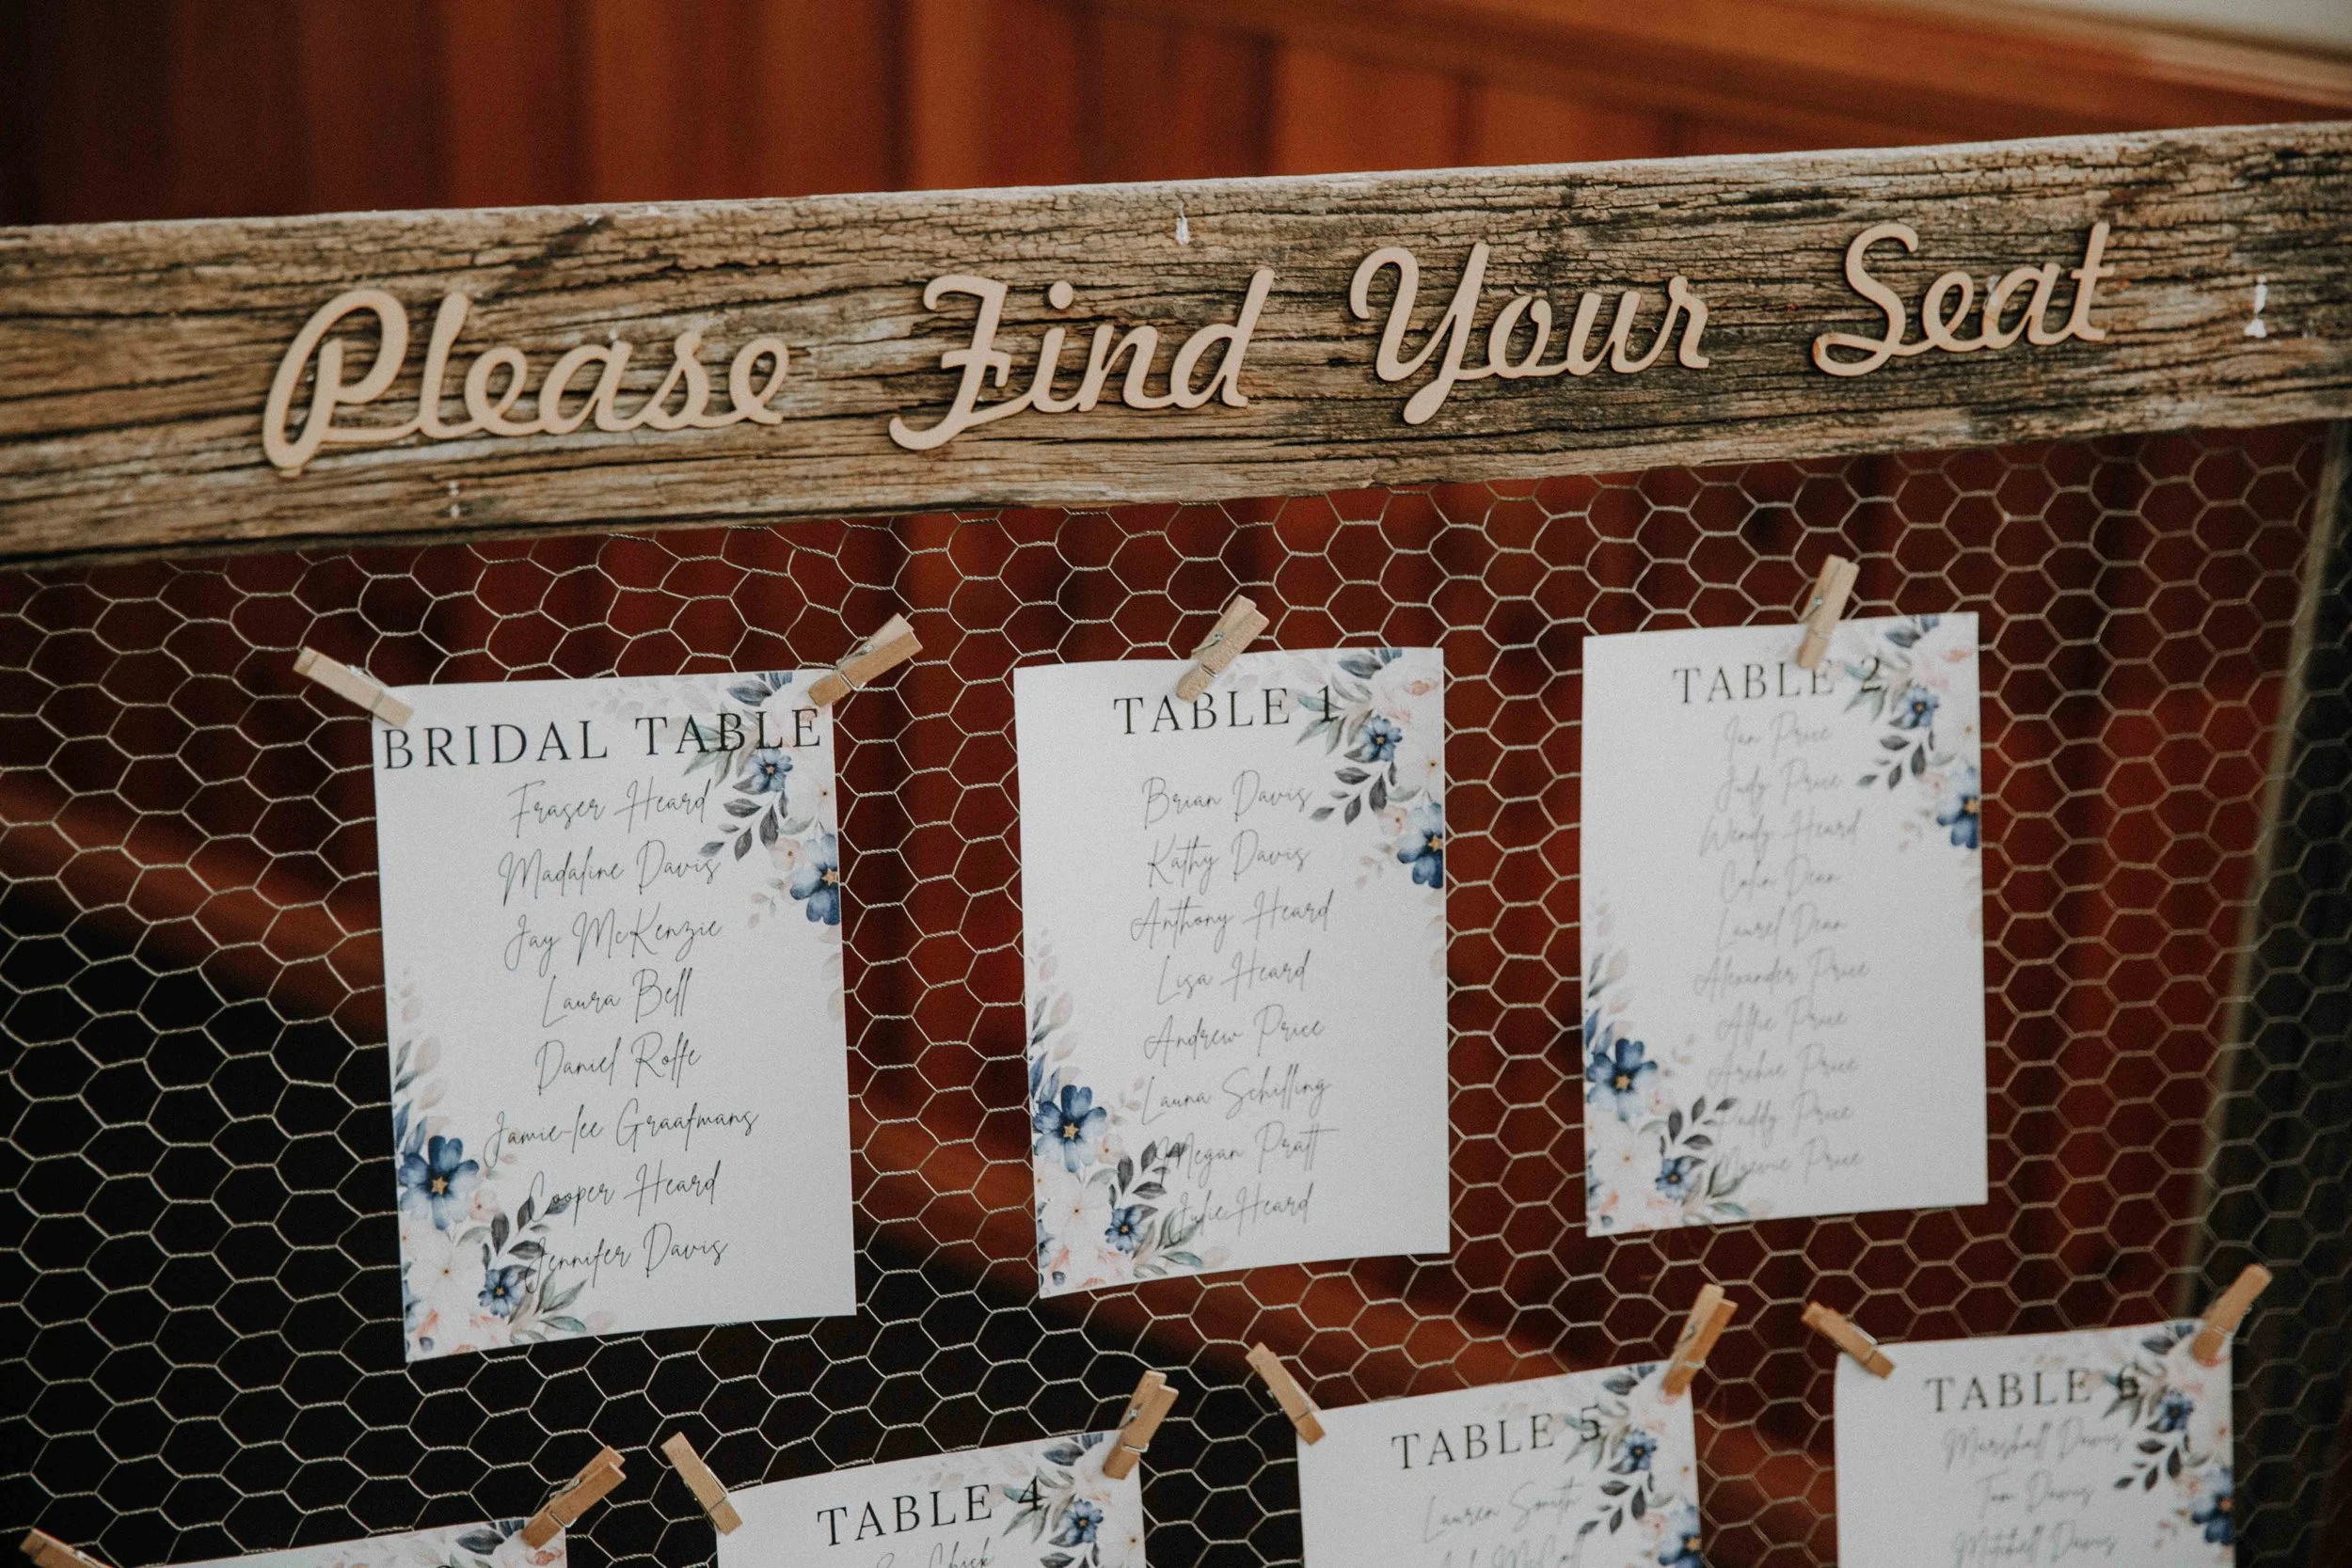 Please Find Your Seat
BRIDAL TABLE
Fraser Heard
Madaline Davis
Jay McKenzie
Laura Bell
Daniel Rolfe
Jamie-lee Graafmans
Cooper Heard
Jennifer Davis
TABLE 1
Brian Davis
Kathy Davis
Anthony Heard
Lisa Heard
Andrew Price
Laura Schilling
Megan Pratt
Julie Heard
TABLE 2
Ian Price
Judy Price
Wendy Heard
Colin Dean
Laurel Dean
Alexander Price
Alfie Price
Archie Price
Paddy Price
Price
TABLE 4
Chick
TABLE 5
Lauren Smith
TABLE 6
Marshall Davis
Tom Davis
Mitchell Davis